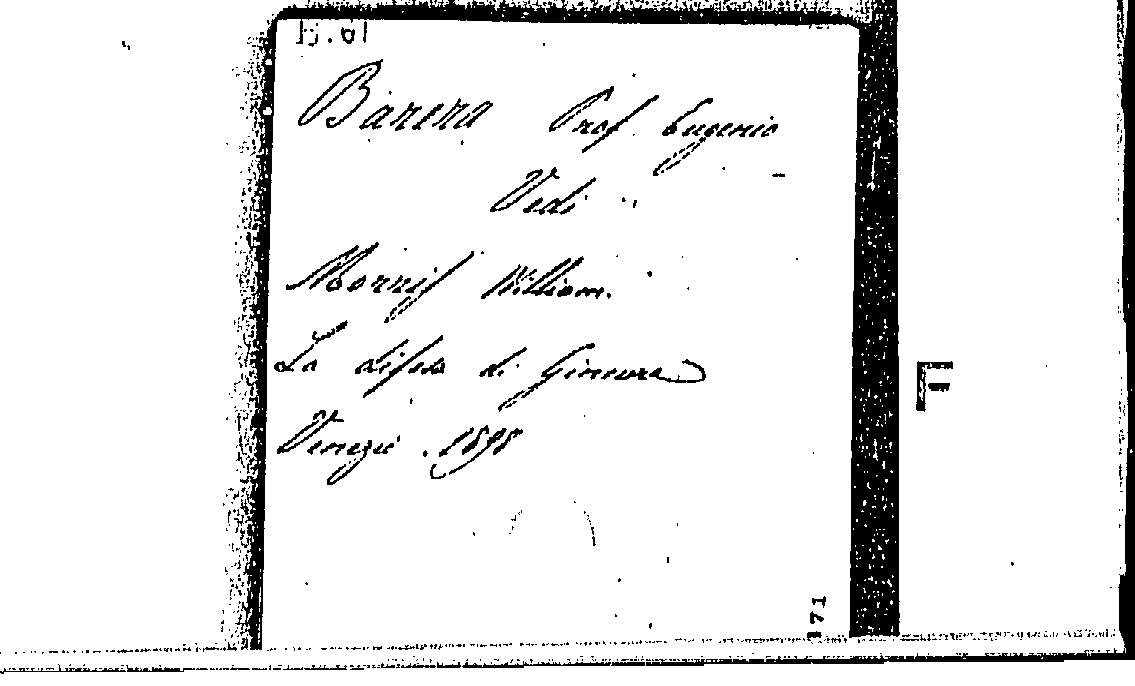 Barera Prof. Eugenio
Vedi
Morris William.
La difesa di Ginevra
Venezia. 1898
F
171